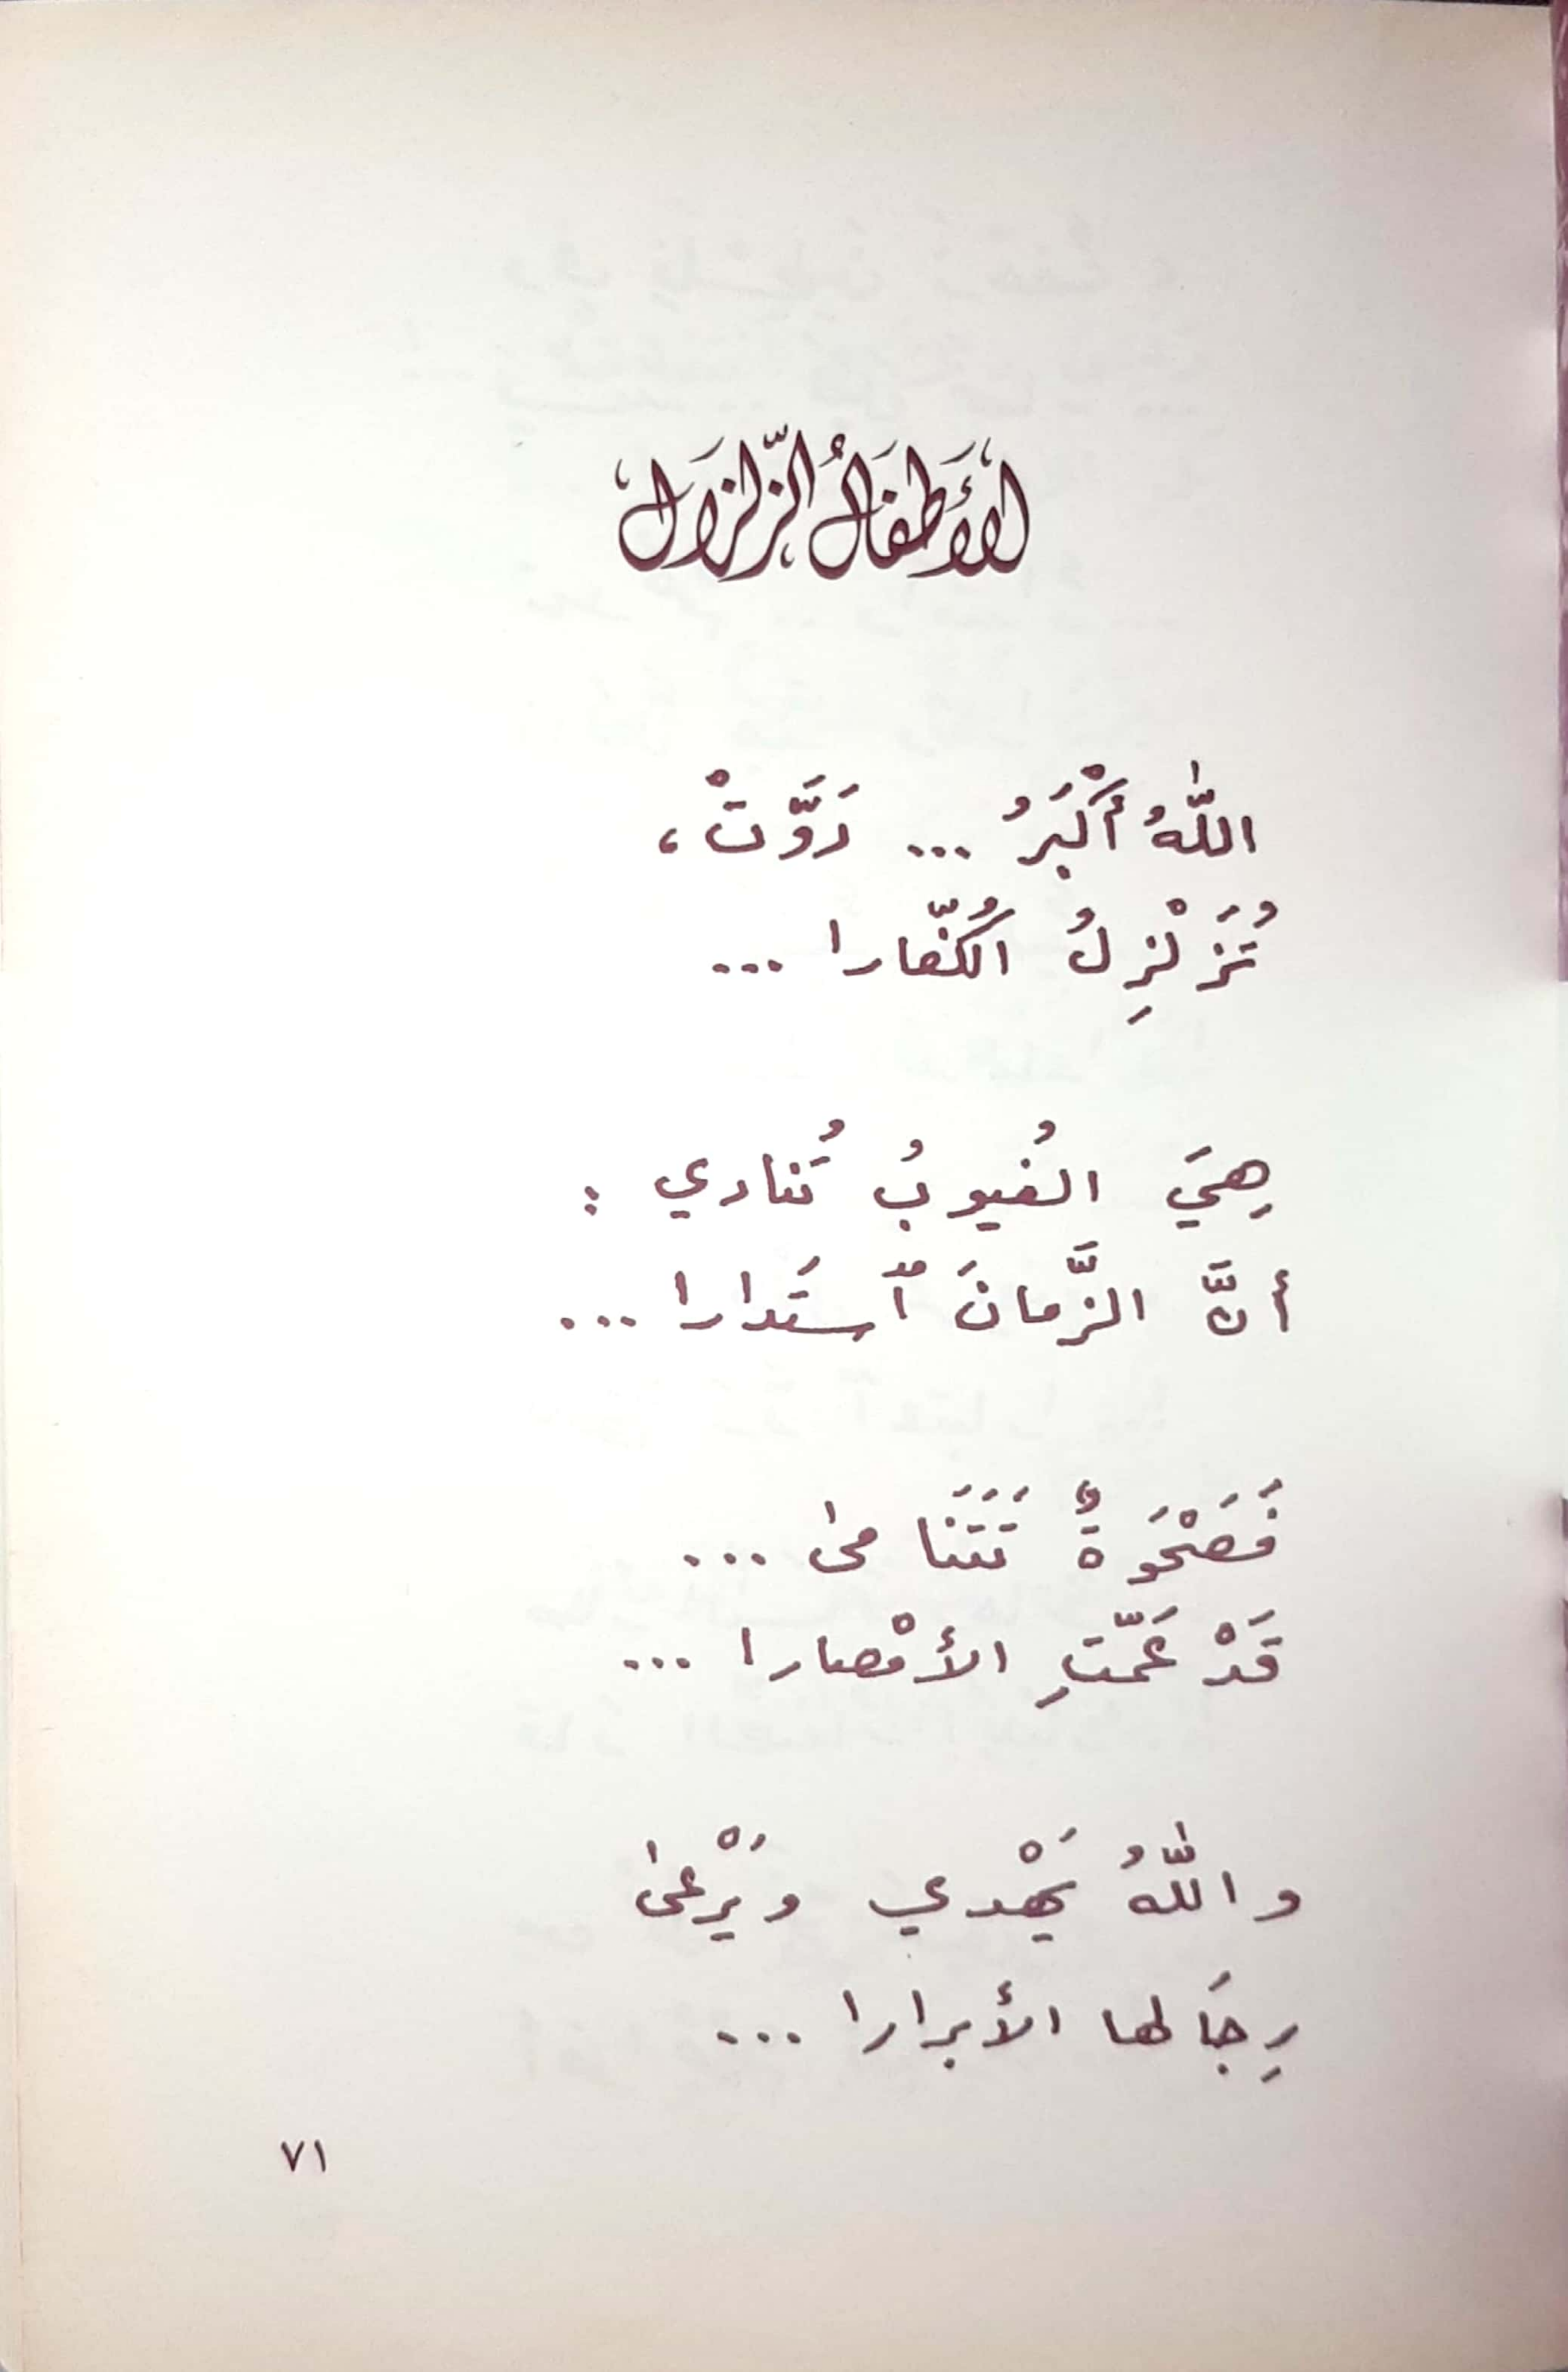 الأَطفَالُ الزّلزَال
اللّٰهُ أَكْبَرُ ... دَوَّتْ ،
تُزَلْزِلُ الكُفّارا ...
هِيَ الغُيوبُ تُنادي :
أنَّ الزَّمانَ ٱستَدارا ...
فَصَحْوَةٌ تَتَنَامىٰ ...
قَدْ عَمّتِ الأمْصارا ...
واللّٰهُ يَهْدي ويَرْعىٰ
رِجَالها الأبرارا ...
٧١